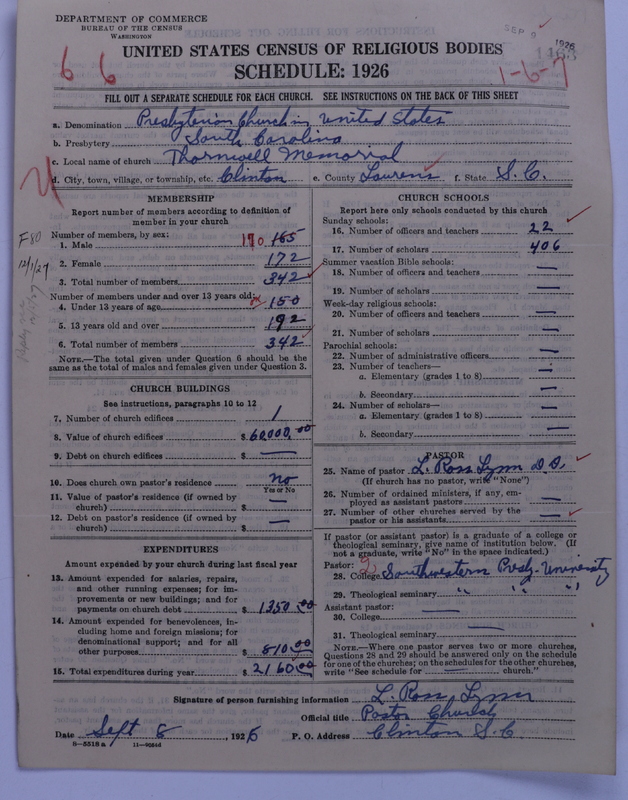 DEPARTMENT OF COMMERCE
BUREAU OF THE CENSUS
WASHINGTON
SEP 9 1926
1468
UNITED STATES CENSUS OF RELIGIOUS BODIES
SCHEDULE: 1926
6 6
1-6-7
FILL OUT A SEPARATE SCHEDULE FOR EACH CHURCH. SEE INSTRUCTIONS ON THE BACK OF THIS SHEET
a. Denomination Presbyterian Church in United States
b. Presbytery South Carolina
c. Local name of church Thornwell Memorial
d. City, town, village, or township, etc. Clinton e. County Laurens f. State S.C.
F80
12/1/27
MEMBERSHIP
Report number of members according to definition of
member in your church
Number of members, by sex:
1. Male 170 165
2. Female 172
3. Total number of members 342
Number of members under and over 13 years old:
4. Under 13 years of age 150
5. 13 years old and over 192
6. Total number of members 342
NOTE.—The total given under Question 6 should be the
same as the total of males and females given under Question 3.
CHURCH BUILDINGS
See instructions, paragraphs 10 to 12
7. Number of church edifices 1
8. Value of church edifices $ 60000.00
9. Debt on church edifices $ —
10. Does church own pastor's residence no
Yes or No
11. Value of pastor's residence (if owned by
church) $ —
12. Debt on pastor's residence (if owned by
church) $ —
EXPENDITURES
Amount expended by your church during last fiscal year
13. Amount expended for salaries, repairs,
and other running expenses; for im-
provements or new buildings; and for
payments on church debt $ 1350.00
14. Amount expended for benevolences, in-
cluding home and foreign missions; for
denominational support; and for all
other purposes $ 810.00
15. Total expenditures during year $ 2160.00
CHURCH SCHOOLS
Report here only schools conducted by this church
Sunday schools:
16. Number of officers and teachers 22
17. Number of scholars 406
Summer vacation Bible schools:
18. Number of officers and teachers —
19. Number of scholars —
Week-day religious schools:
20. Number of officers and teachers —
21. Number of scholars —
Parochial schools:
22. Number of administrative officers —
23. Number of teachers—
a. Elementary (grades 1 to 8) —
b. Secondary —
24. Number of scholars—
a. Elementary (grades 1 to 8) —
b. Secondary —
PASTOR
25. Name of pastor L. Ross Lynn D.D.
(If church has no pastor, write "None")
26. Number of ordained ministers, if any, em-
ployed as assistant pastors —
27. Number of other churches served by the
pastor or his assistants —
If pastor (or assistant pastor) is a graduate of a college or
theological seminary, give name of institution below. (If
not a graduate, write "No" in the space indicated.)
Pastor: 2
28. College Southwestern Presby. University
29. Theological seminary " " "
Assistant pastor:
30. College —
31. Theological seminary —
NOTE.—Where one pastor serves two or more churches,
Questions 28 and 29 should be answered only on the schedule
for one of the churches; on the schedules for the other churches,
write "See schedule for — church."
Signature of person furnishing information L. Ross Lynn
Official title Pastor Church
Date Sept 8, 1926 P. O. Address Clinton S.C
8-5518 a 11-9054d